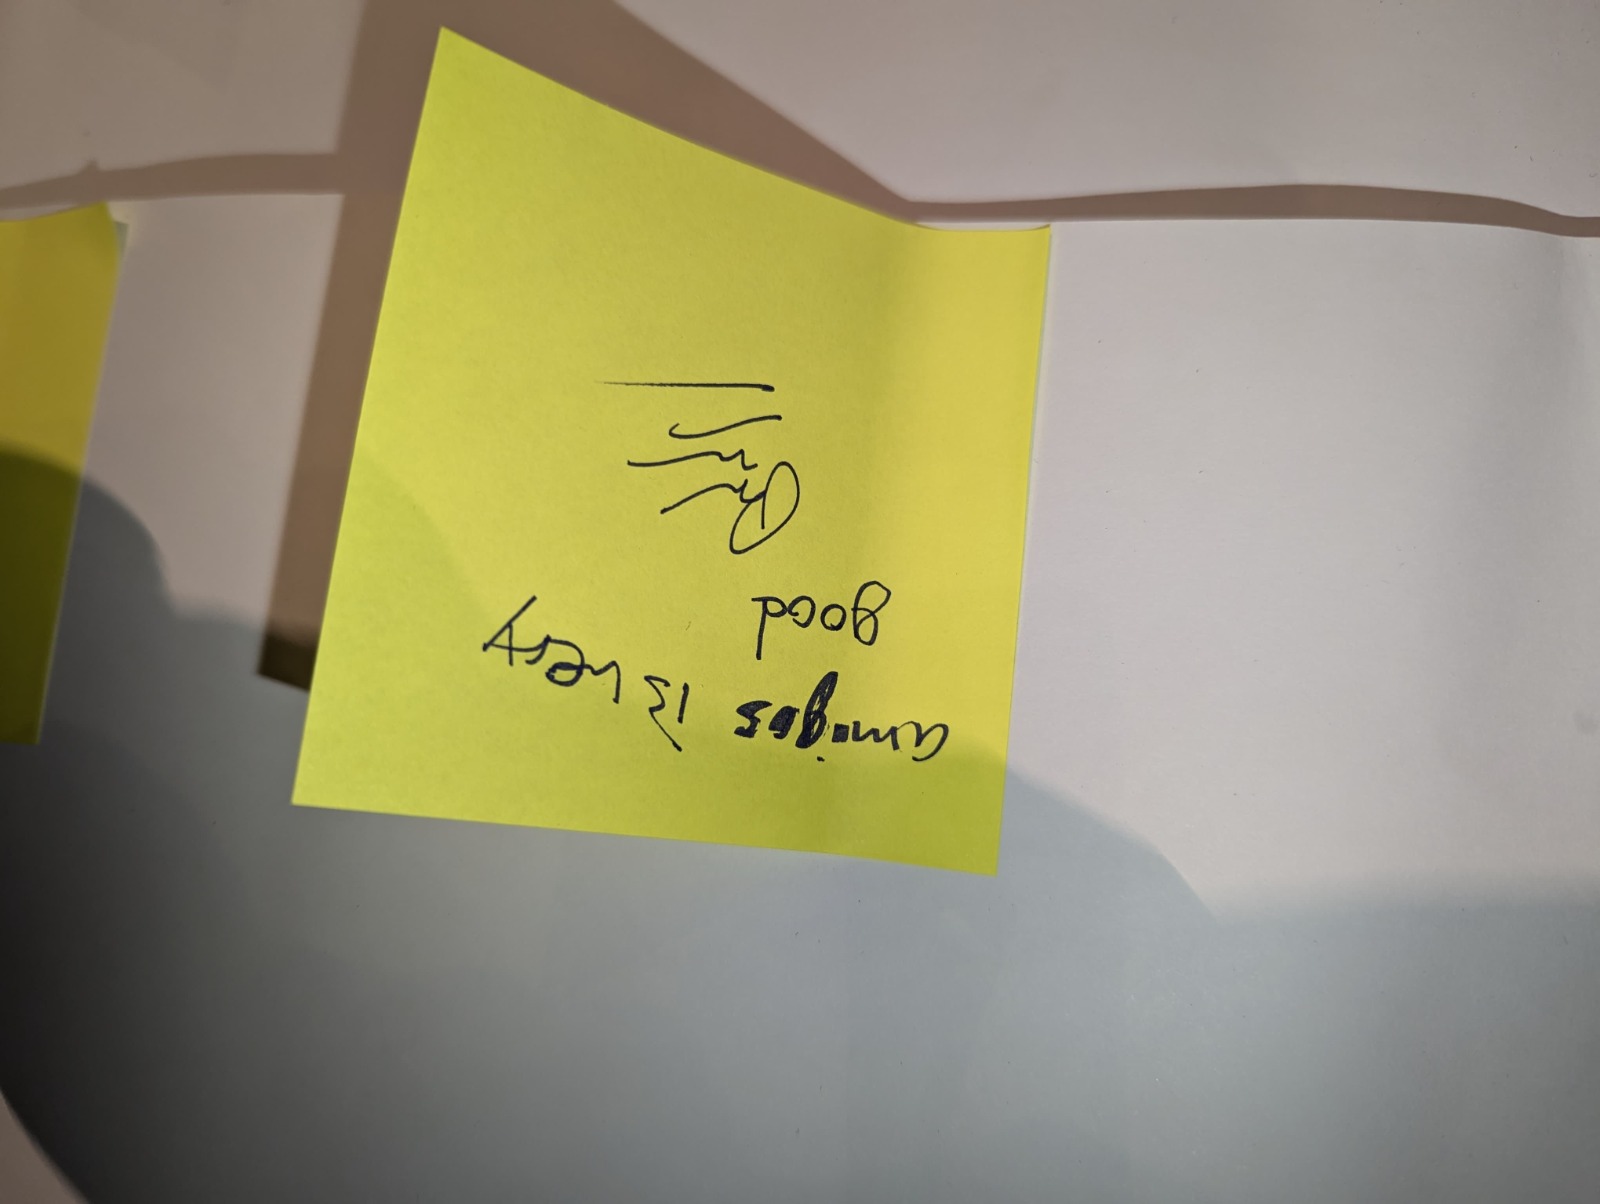 amigos is very
good